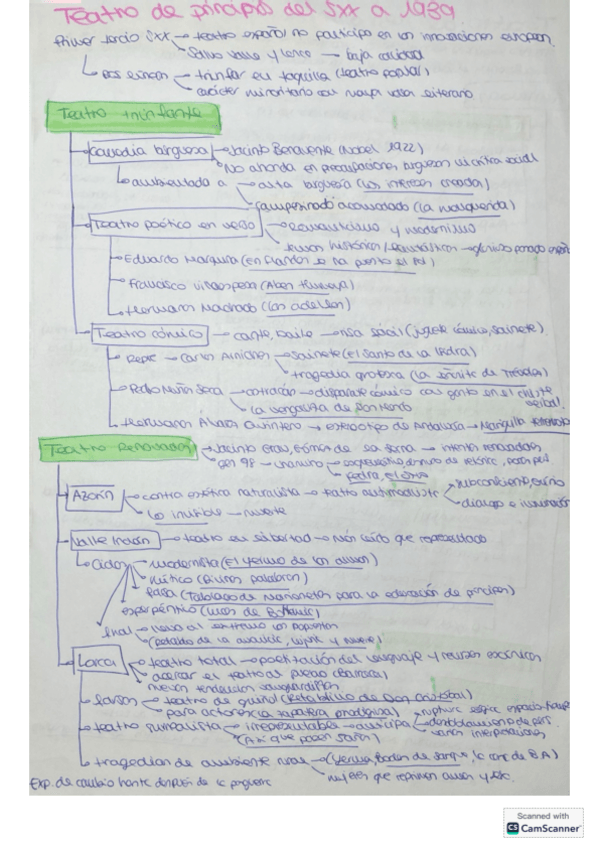 Teatro de principios del SXX a 1939
Primer tercio SXX → teatro español no participa en las innovaciones europeas.
Salvo Valle y Lorca → baja calidad
Dos líneas → triunfar en taquilla (teatro popular)
carácter minoritario con mayor valor literario
Teatro triunfante
Comedia burguesa → Jacinto Benavente (Nobel 1922)
No ahonda en preocupaciones burguesas ni crítica social
ambientado a → alta burguesía (Los intereses creados)
campesinado acomodado (La malquerida)
Teatro poético en verso → Romanticismo y modernismo
temas históricos/fantásticos → glorioso pasado
Eduardo Marquina (En Flandes se ha puesto el sol)
Francisco Villaespesa (Aben Humeya)
Hermanos Machado (Las adelfas)
Teatro cómico → cante, baile → risa fácil (juguete cómico, sainete).
Carlos Arniches → Sainete (El Santo de la Isidra)
tragedia grotesca (La señorita de Trévelez)
Pedro Muñoz Seca → astracán → disparate cómico con gusto en el chiste verbal.
La venganza de Don Mendo
Hermanos Álvarez Quintero → estereotipo de Andalucía → Mariquilla Terremoto
Teatro Renovador → Jacinto Grau, Gómez de la Serna → intentos renovadores
gen 98 → Unamuno →
Fedra, El otro
Azorín → contra estética naturalista → teatro antirrealista → subconsciente, sueño
diálogo e
Lo invisible → muerte
Valle Inclán → teatro en libertad → más leído que representado
Ciclos → modernista (El yermo de las almas)
mítico (Divinas palabras)
farsa (Tablado de marionetas para la educación de príncipes)
esperpéntico (Luces de Bohemia)
final → lleva al extremo las
(Retablo de la avaricia, lujuria y muerte)
Lorca → teatro total → poetización del lenguaje y recursos escénicos
acercar el teatro al pueblo (Barraca)
nuevas tendencias vanguardistas
farsas → teatro de guiñol (Retablillo de Don Cristóbal)
para actores (La zapatera prodigiosa)
teatro surrealista → irrepresentables →
(Así que pasen
desdoblamiento de pers.
varias interpretaciones
tragedias de ambiente rural → (Yerma, Bodas de sangre, la casa de B.A)
mujeres que reprimen amor y
Exp. de cambio hasta después de la posguerra
Scanned with
CS CamScanner